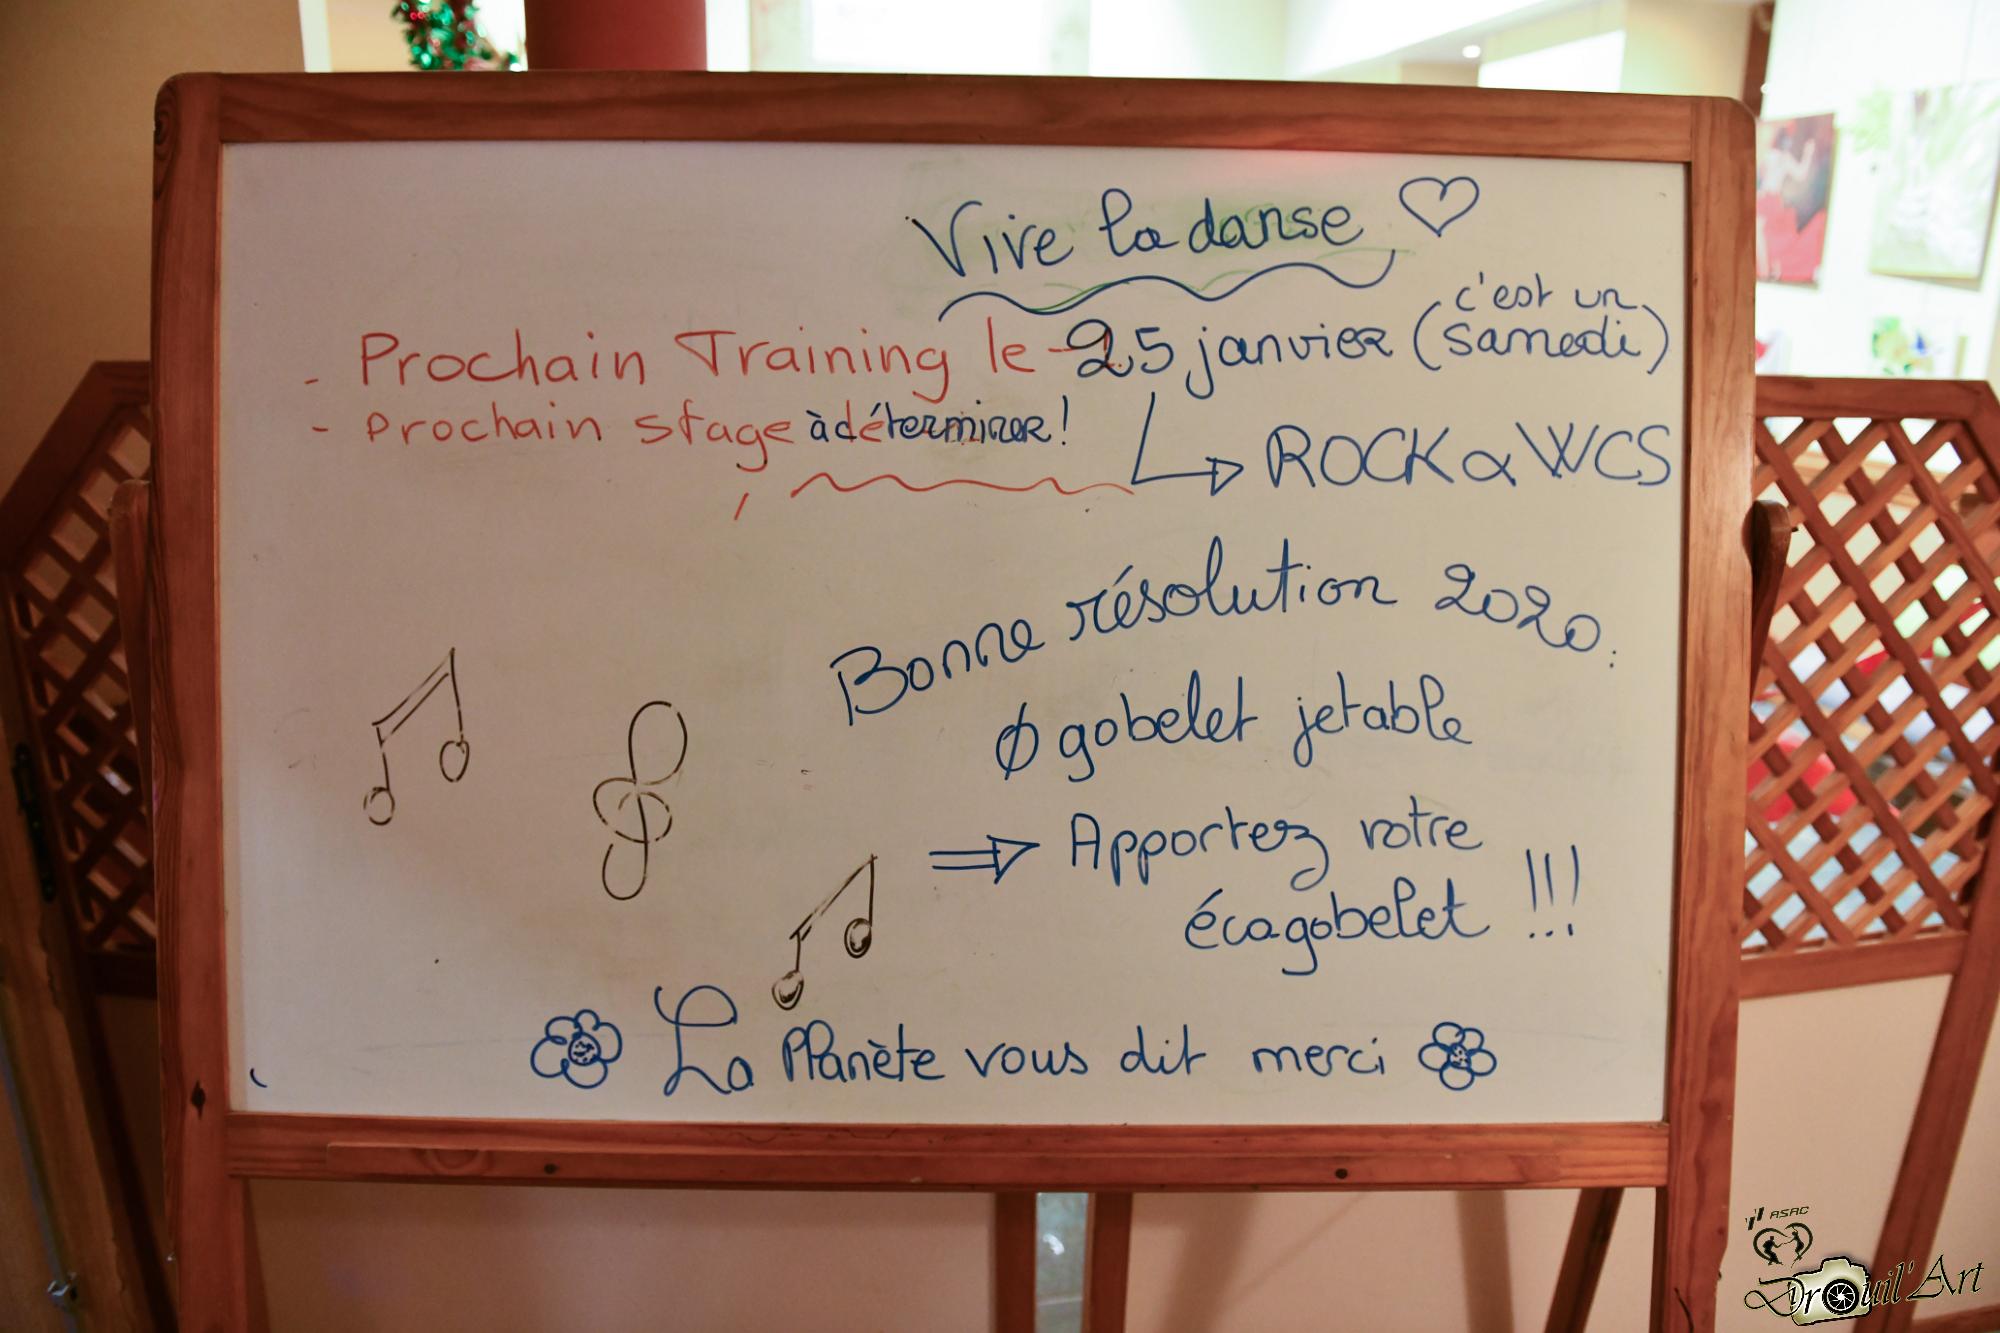 Vive la danse ♡
- Prochain Training le 25 janvier (c'est un samedi)
- Prochain stage à déterminer !
ROCK & WCS
Bonne résolution 2020 :
Ø gobelet jetable
⇒ Apportez votre
écogobelet !!!
La Planète vous dit merci
ASAC
Drouil'Art